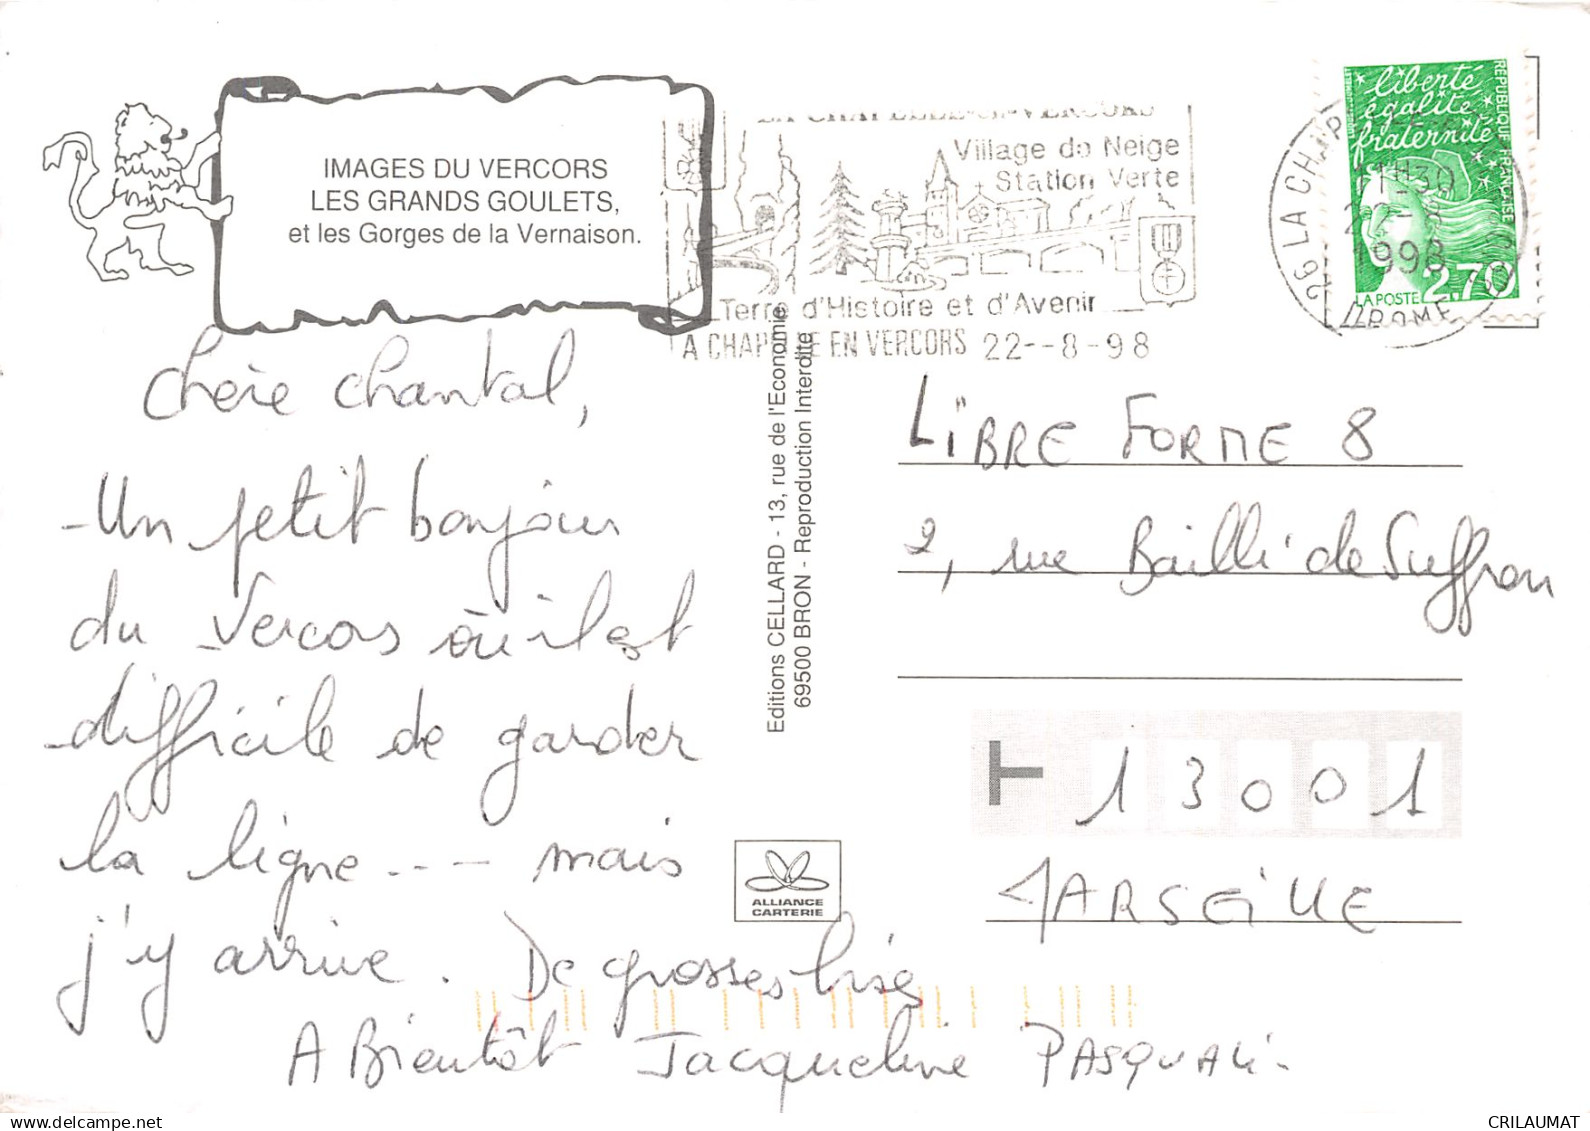 IMAGES DU VERCORS
LES GRANDS GOULETS,
et les Gorges de la Vernaison.
LA CHAPELLE-EN-VERCORS
Village de Neige
Station Verte
Terre d'Histoire et d'Avenir
LA CHAPELLE EN VERCORS 22--8-98
liberté
égalité
fraternité
RÉPUBLIQUE FRANÇAISE
LA POSTE 2,70
26 LA CHAP
1998
DROME
Chère Chantal,
Un petit bonjour
du Vercors où il est
difficile de garder
la ligne... - mais
j'y arrive. De grosses bises
A Bientôt Jacqueline PASQUALI-
Editions CELLARD - 13, rue de l'Economie
69500 BRON - Reproduction Interdite
ALLIANCE
CARTERIE
LIBRE FORME 8
2, rue Bailli de Suffren
13001
MARSEILLE
CRILAUMAT